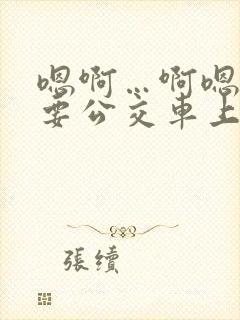 嗯啊…啊嗯
要公交车上
張續